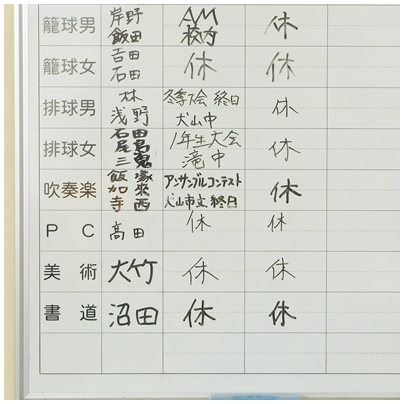 籠球男 岸野 AM 休
飯田 校内
籠球女 吉田 休 休
石田
排球男 林 冬季大会 終日 休
浅野 犬山中
排球女 石田 1年生大会 休
尾名 滝中
三鬼
吹奏楽 飯塚 アンサンブルコンテスト 休
加来 犬山市立 終日
寺西
PC 高田 休 休
美術 大竹 休 休
書道 沼田 休 休